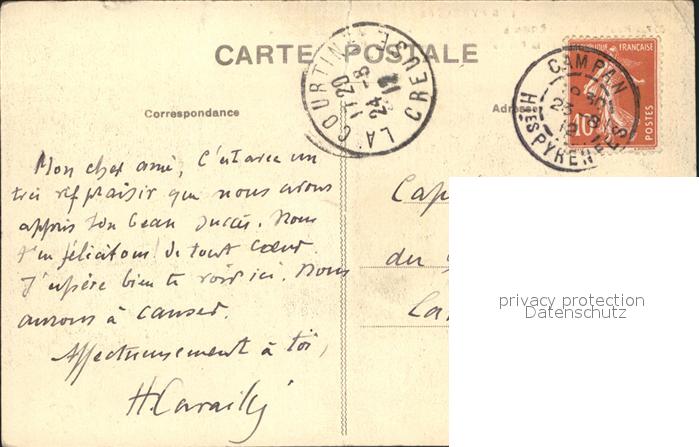 CARTE POSTALE
Correspondance
Adres
LA COURTINE
CREUSE
17 20
24 - 8
12
REPUBLIQUE FRANÇAISE
10
POSTES
CAMPAN
23 8
12
HTES PYRENEES
Mon cher ami, C'est avec un
très vif plaisir que nous avons
appris ton beau succès. Nous
t'en félicitons de tout coeur
J'espère bien te voir ici. Nous
aurons à causer.
Affectueusement à toi,
Cap
du
Ca
privacy protection
Datenschutz